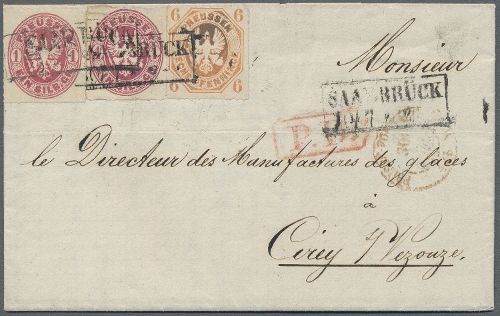 PREUSSEN
1
EIN SILB.GR.
PREUSSEN
6 PREUSSEN 6
6 PFENNINGE 6
SAARBRÜCK
Monsieur
SAARBRÜCK
P.D.
le Directeur des Manufactures des glaces
à
Cirey s/Vezouze.